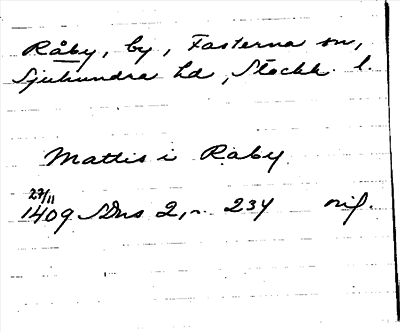 Råby, by, Fasterna sn,
Sjuhundra hd, Stockh. l.
Mattis i Raby
27/11
1409 SDns 2, n. 234 nif.